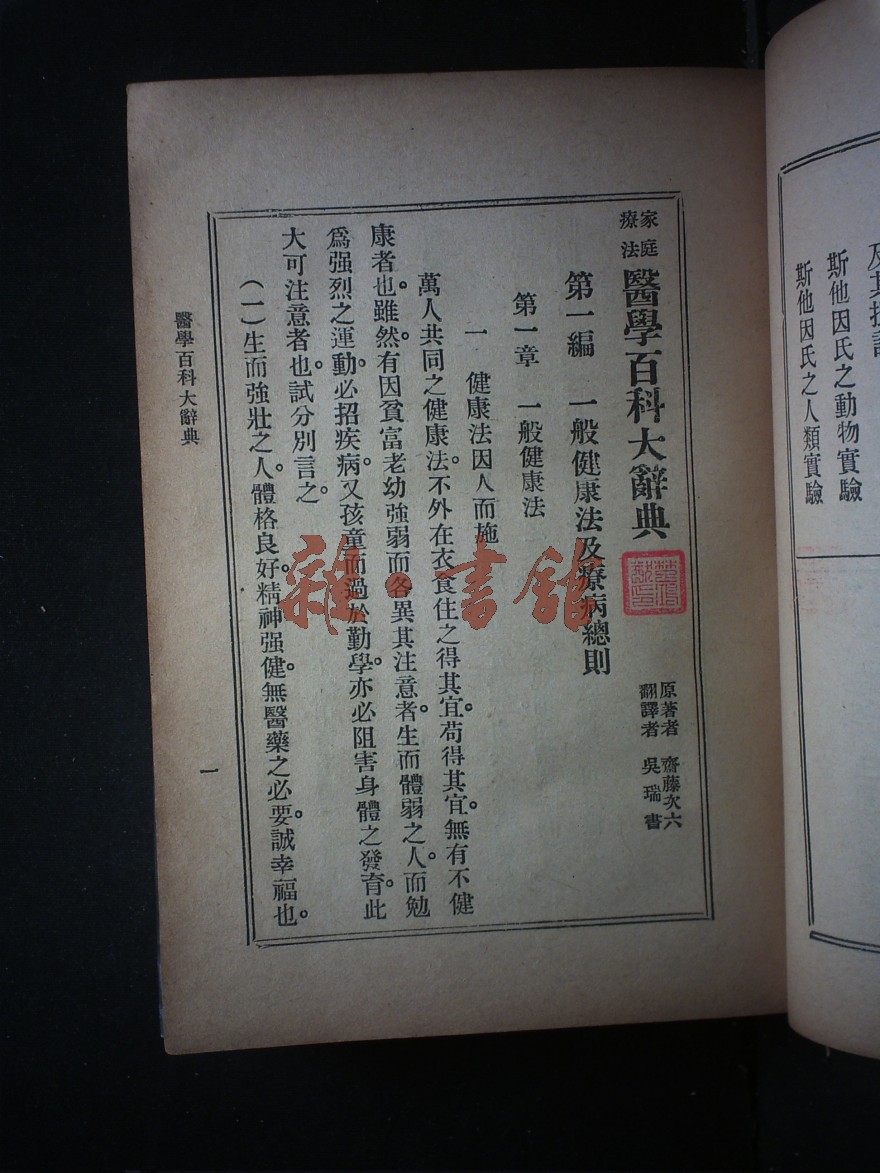 及其
斯他因氏之動物實驗
斯他因氏之人類實驗
家庭
療法
醫學百科大辭典
原著者 齋藤次六
翻譯者 吳瑞書
第一編 一般健康法及療病總則
第一章 一般健康法
一 健康法因人而施
萬人共同之健康法。不外在衣食住之得其宜。苟得其宜。無有不健
康者也。雖然。有因貧富老幼強弱而各異其注意者。生而體弱之人。而勉
爲强烈之運動。必招疾病。又孩童而過於勤學。亦必阻害身體之發育。此
大可注意者也。試分別言之。
(一)生而強壯之人。體格良好。精神强健。無醫藥之必要。誠幸福也。
醫學百科大辭典
一
雜·書館